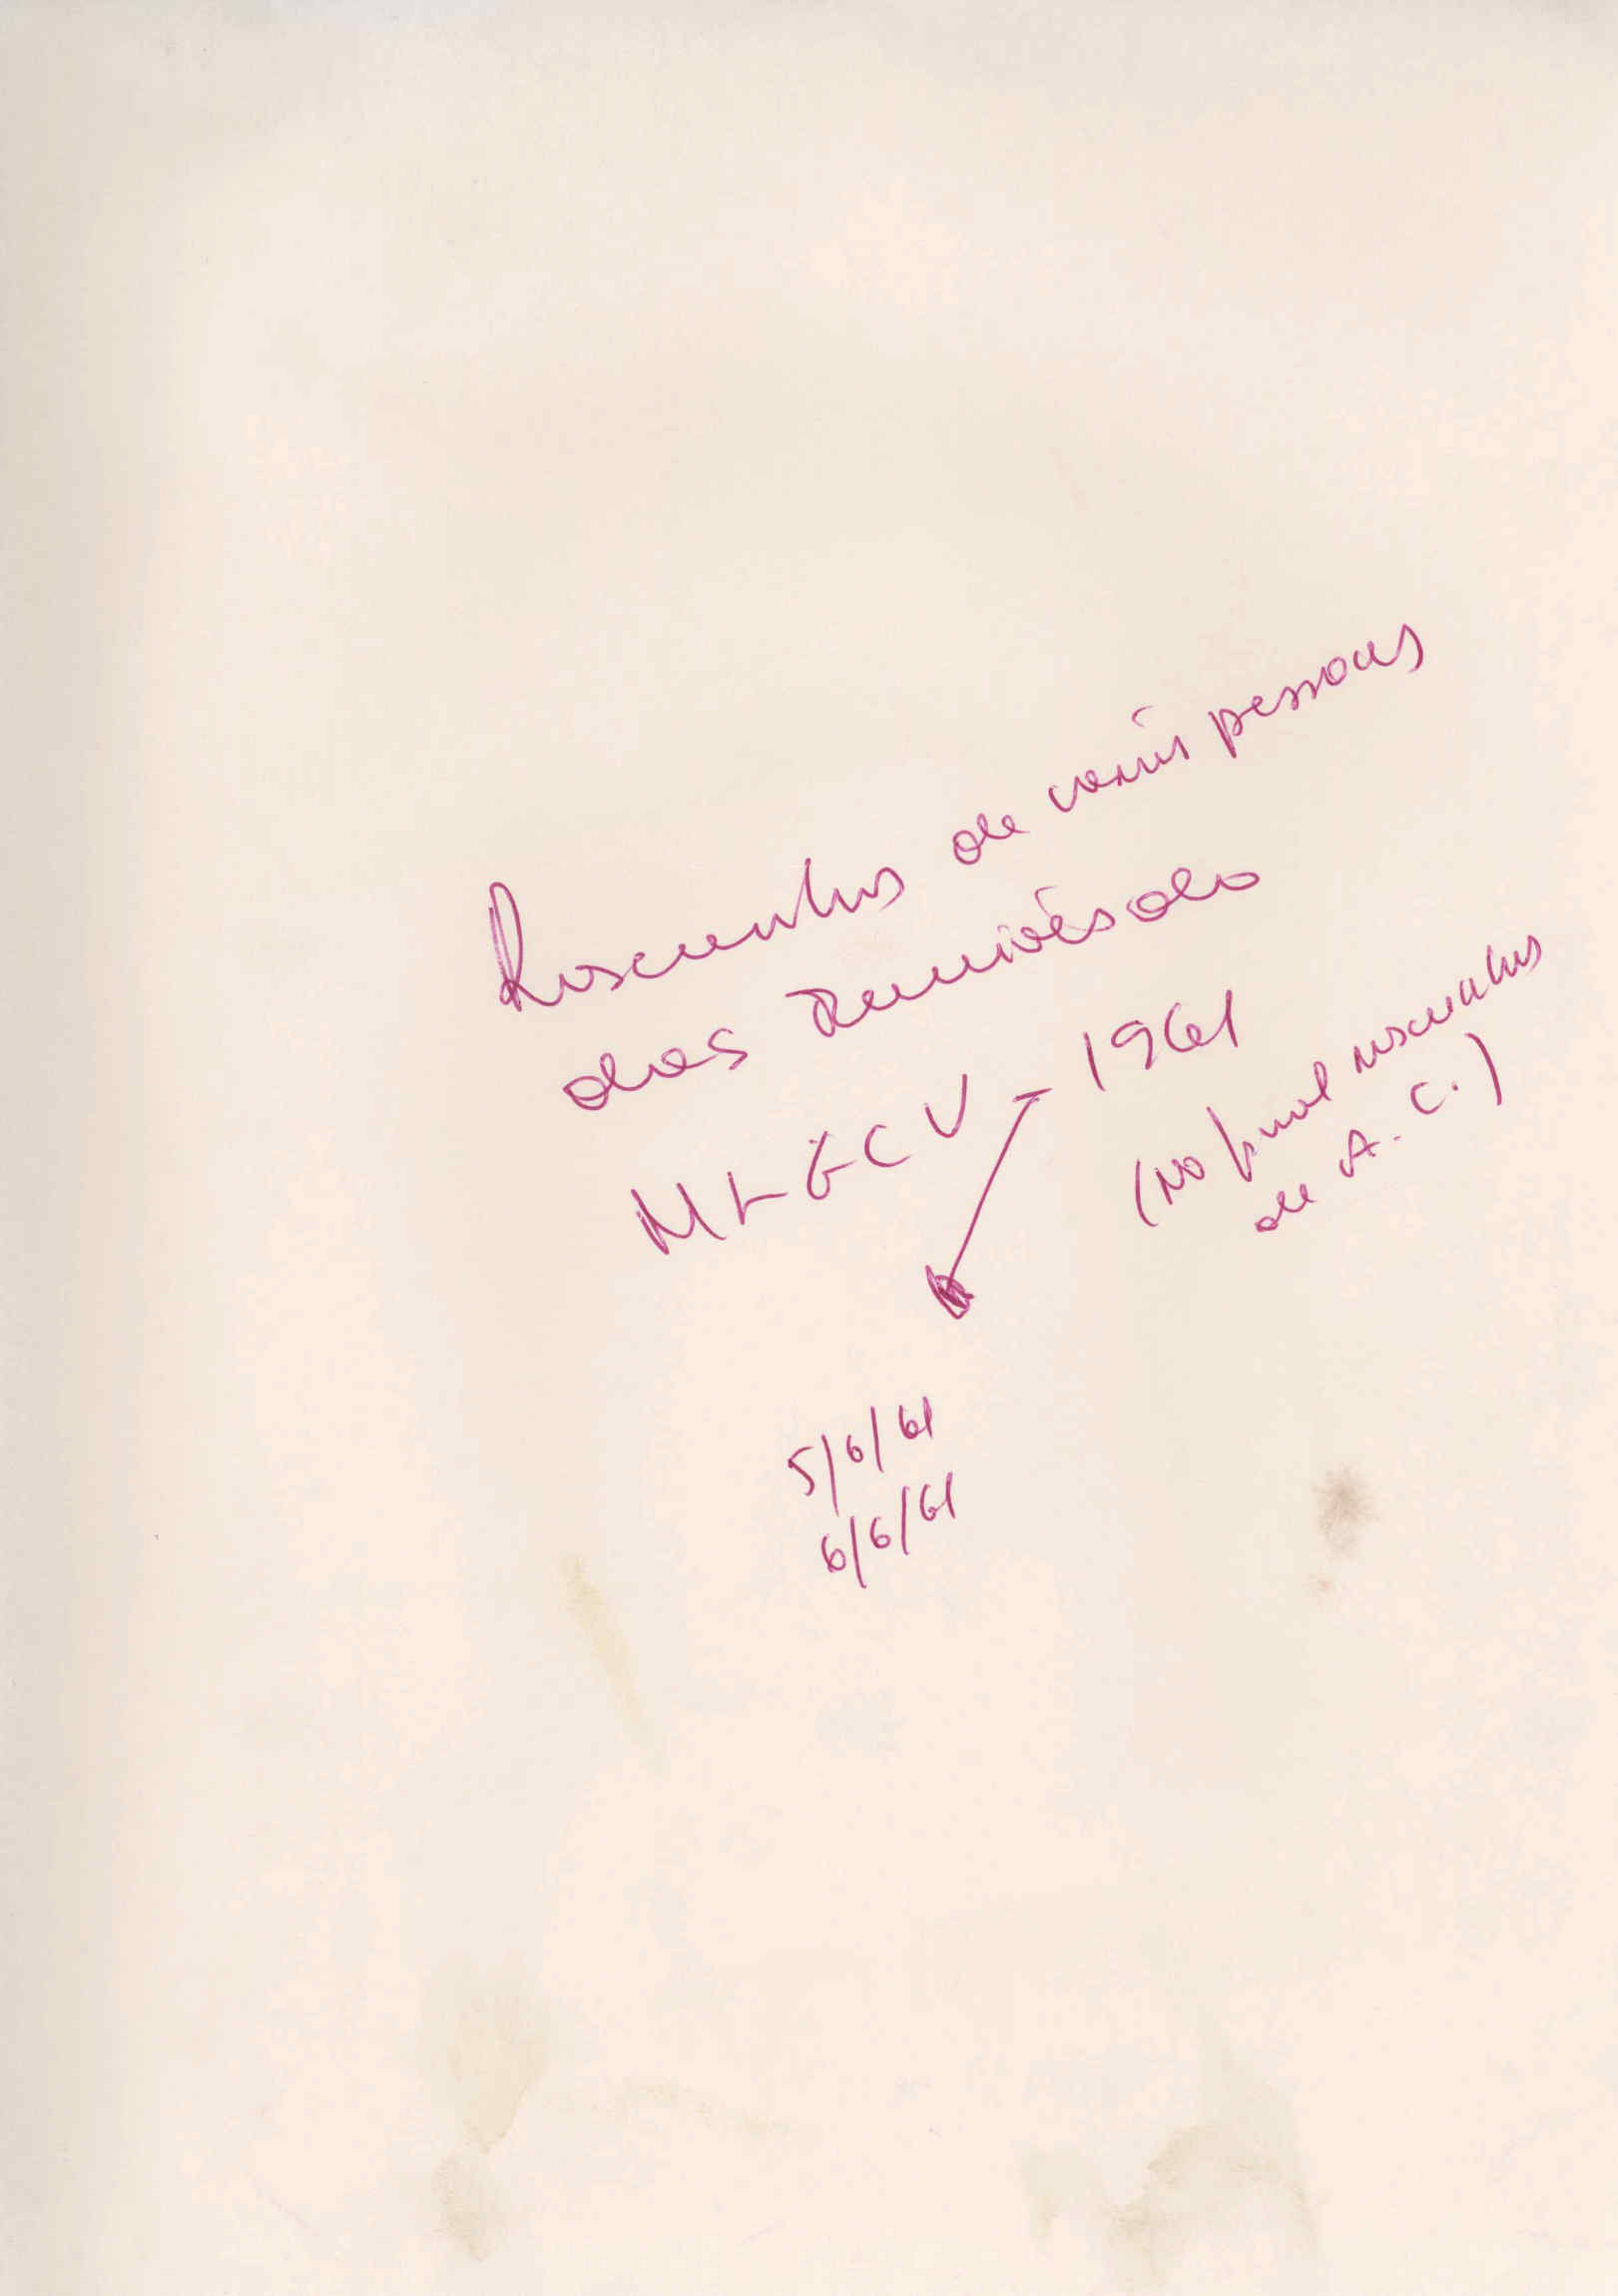 Rascunhos de várias pessoas
das reuniões do
MLGCV - 1961
(No final rascunhos
de A. C.)
5/6/61
6/6/61